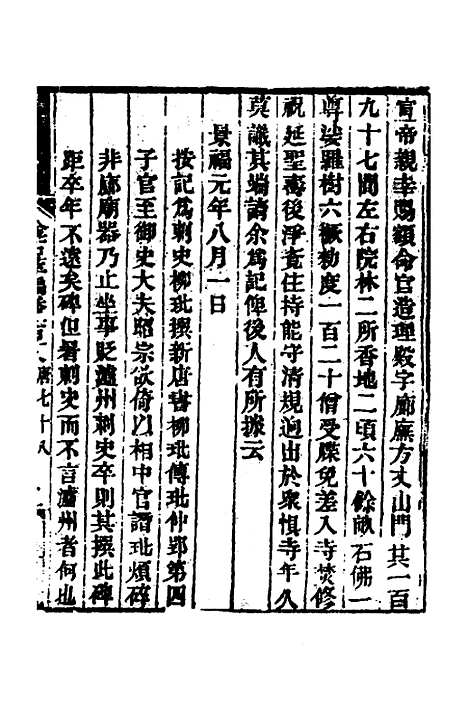 宣帝親幸賜額命官造理殿宇廊廡方丈山門其一百
九十七間左右院林二所香地二頃六十餘畝石佛一
尊娑羅樹六橛勑度一百二十僧受牒免差入寺焚修
祝延聖壽後淨竟住持能守清規迥出於眾惧寺年久
莫識其端請余爲記俾後人有所㨿云
景福元年八月一日
按記爲刺史柳玭撰新唐書柳玭傳玭仲郢第四
子官至御史大夫昭宗欲倚以相中官譖玭煩碎
非廊廟器乃止坐事貶瀘州刺史卒則其撰此碑
距卒年不遠矣碑但署刺史而不言瀘州者何也
唐七十八